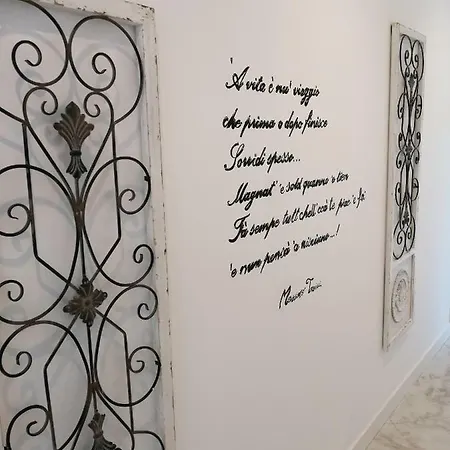 'A vita è nu' viaggio
che prima o dopo finisce
Sorridi spesso...
Magnat' 'e sold quanno 'e tien
Fà sempe tutt chell ca te piac 'e fà
'e nun penzà 'a nisciuno...!
Massimo Troisi